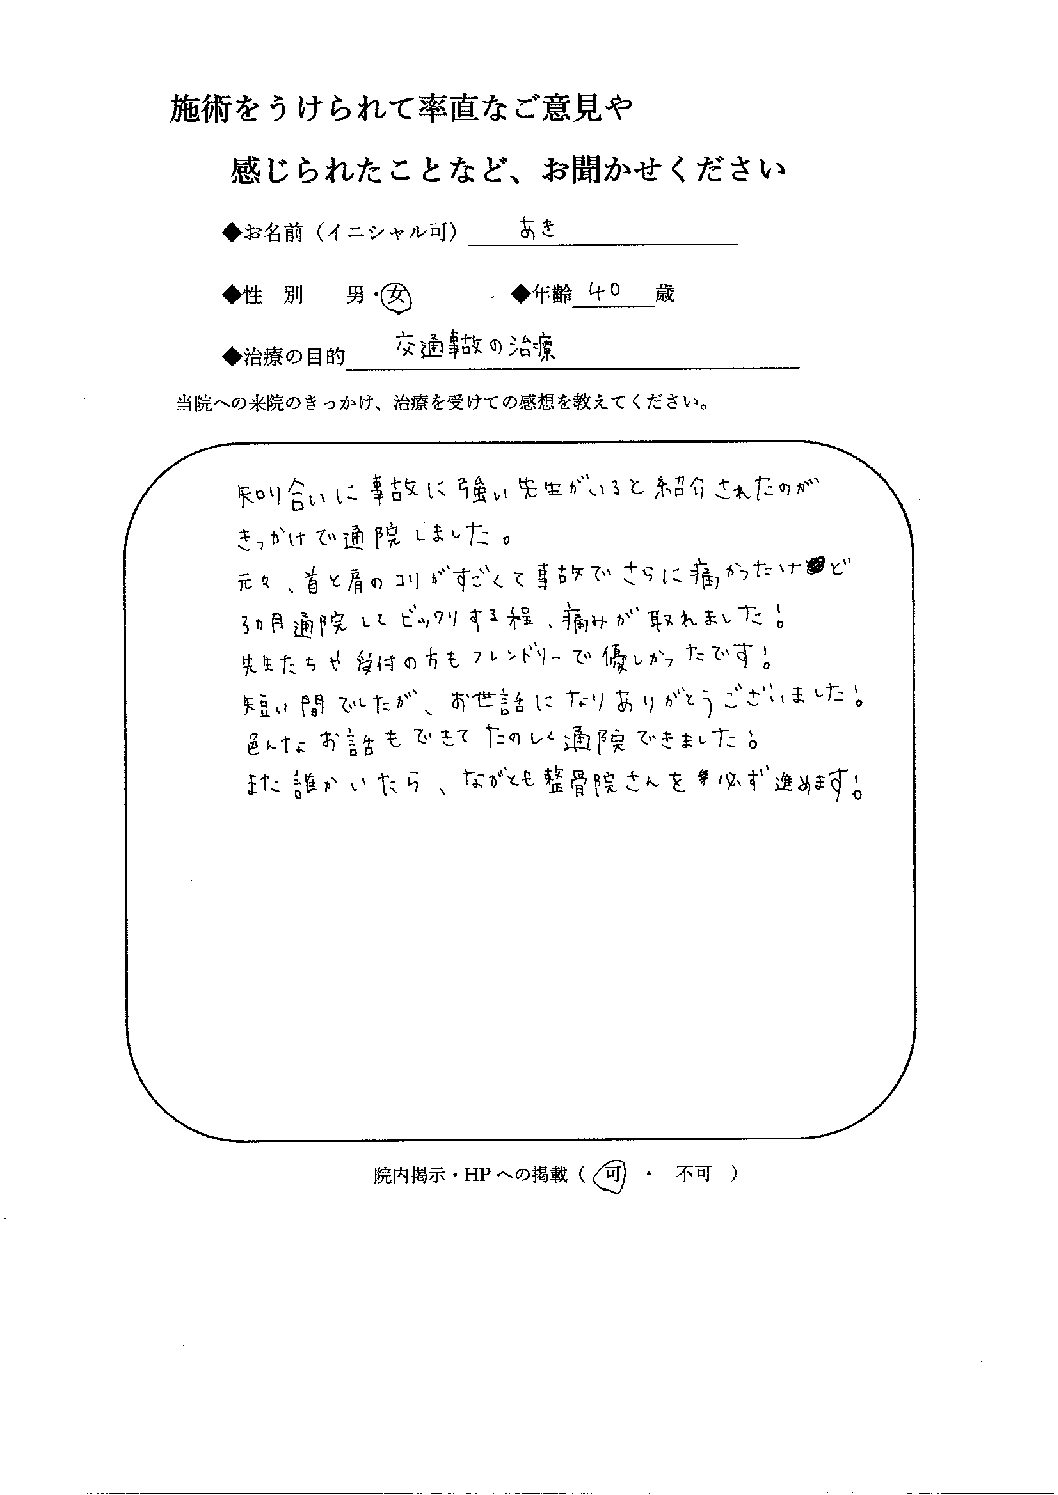 施術をうけられて率直なご意見や
感じられたことなど、お聞かせください
◆お名前（イニシャル可） あき
◆性　別　　男・女　　◆年齢 40 歳
◆治療の目的 交通事故の治療
当院への来院のきっかけ、治療を受けての感想を教えてください。
知り合いに事故に強い先生がいると紹介されたのが
きっかけで通院しました。
元々、首と肩のコリがすごくて事故でさらに痛かったけど
3カ月通院してビックリする程、痛みが取れました！
先生たちや受付の方もフレンドリーで優しかったです！
短い間でしたが、お世話になりありがとうございました！
色んなお話もできてたのしく通院できました！
また誰かいたら、ながとも整骨院さんを必ず進めます！
院内掲示・HPへの掲載（ 可 ・ 不可 ）